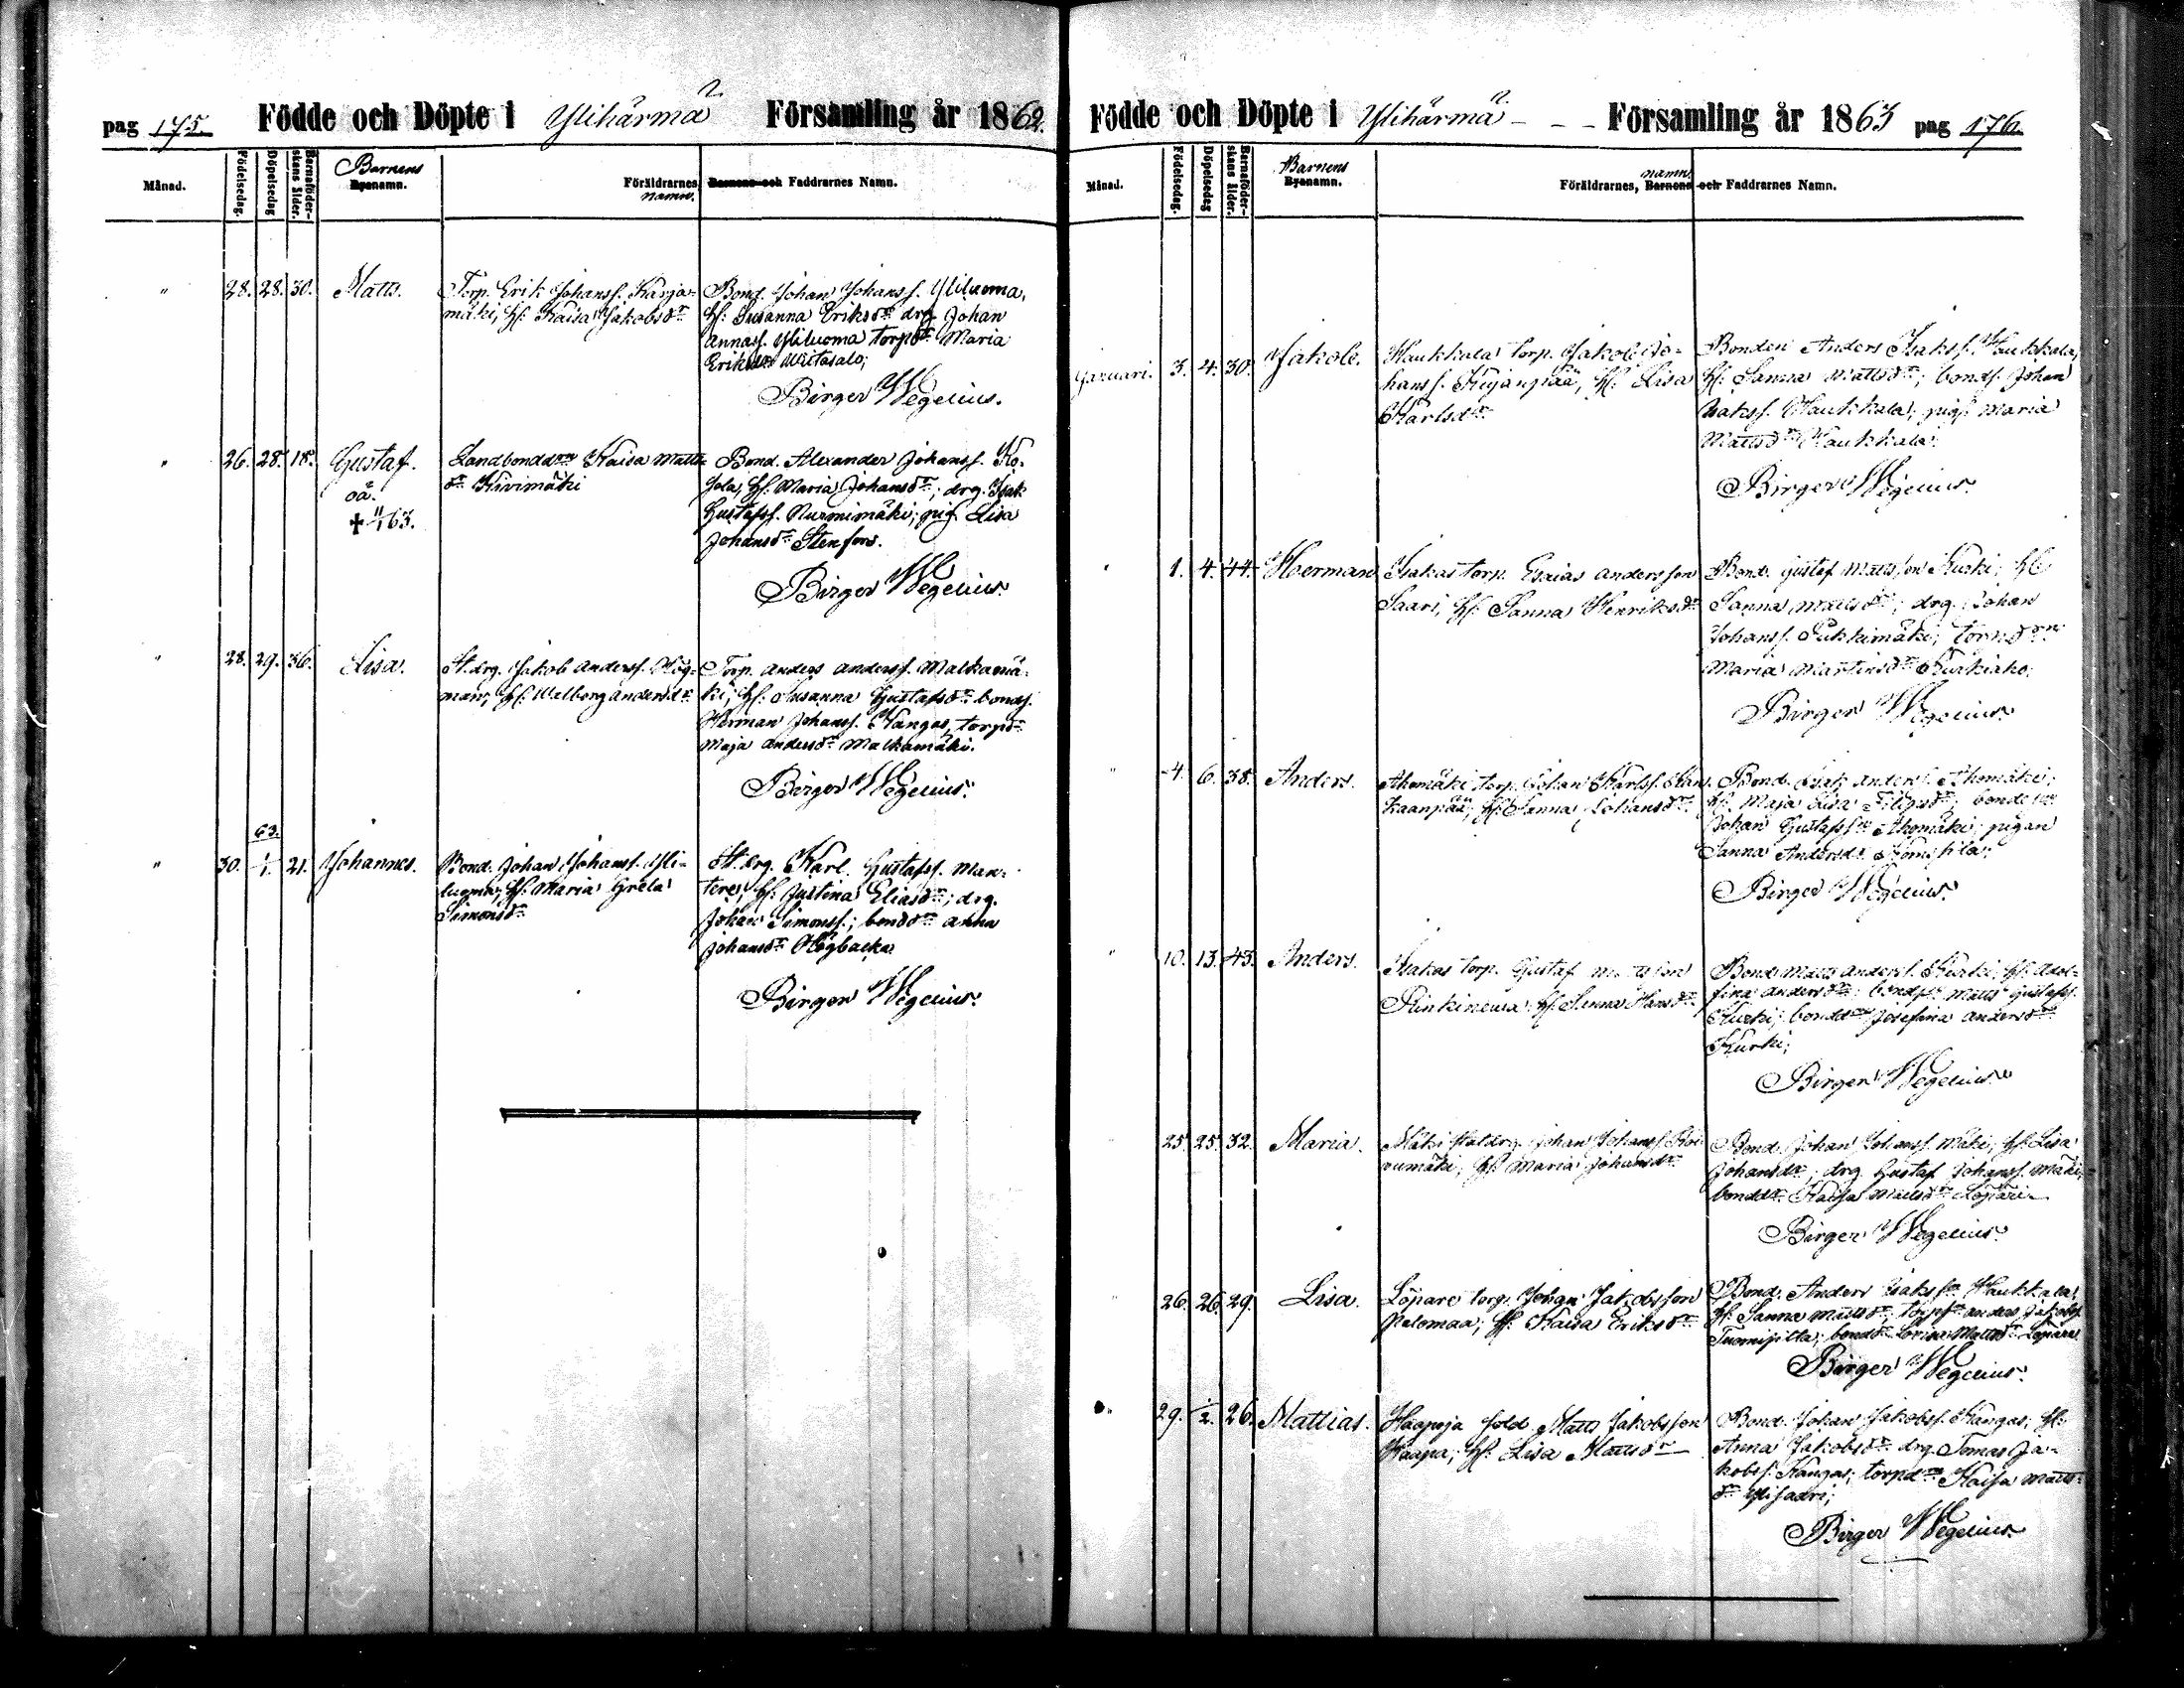 pag 175. Födde och Döpte i Ylihärmä Församling år 1862.
Månad. Födelsedag. Döpelsedag Barnaföder-skans ålder. Barnens Byanamn. Föräldrarnes namn. Barnens och Faddrarnes Namn.
" 28. 28. 30. Matts. Torp. Erik Johanss. Karja-
mäki, Hs: Kaisa Jakobsdr
Bond. Johan Johanss. Yliluoma,
Hs: Susanna Eriksdr drg. Johan
Annass. Yliluoma torpdr Maria
Eriksdr Wiitasalo;
Birger Wegelius.
" 26. 28. 18. Gustaf.
oä.
✝ 11/4 63.
Landbonddrn Kaisa Matts-
dr Kivimäki
Bond. Alexander Johanss. Ko-
jola, Hs: Maria Johansdr; drg. Isak
Gustafss. Nurmimäki; pig. Lisa
Johansdr Stenfors.
Birger Wegelius.
" 28. 29. 36. Lisa. St. drg. Jakob Anderss. Hög-
man, Hs: Walborg Andersdr
Torp. Anders Anderss. Malkamä-
ki, Hs: Susanna Gustafsdr bonds.
Herman Johanss. Kangas, torpdr
Maja Andersdr Malkamäki.
Birger Wegelius.
63.
" 30. 1/1. 21. Johannes. Bond. Johan Johanss. Yli-
luoma, Hs: Maria Greta
Simonsdr
St. drg. Karl Gustafss. Man-
tere, Hs: Justina Eliasdr; drg.
Johan Simonss.; bonddrn Anna
Johansdr Högbacka
Birger Wegelius.
Födde och Döpte i Ylihärmä - - - Församling år 1863 pag 176.
Månad. Födelsedag. Döpelsedag Barnaföder-skans ålder. Barnens Byanamn. Föräldrarnes, namn. Barnens och Faddrarnes Namn.
Januari. 3. 4. 30. Jakob. Haukkala torp. Jakob Jo-
hanss. Kujanpää, Hs: Lisa
Karlsdr
Bonden Anders Isakss. Haukkala,
Hs: Sanna Mattsdr; bonds. Johan
Isakss. Haukkala; pig. Maria
Mattsdr Haukkala.
Birger Wegelius.
" 1. 4. 44. Herman Isakas torp. Esaias Andersson
Saari, Hs: Sanna Henriksdr
Bond. Gustaf Mattsson Kurki; Hs
Sanna Mattsdr; drg. Johan
Johanss. Pukkimäki; torpdrn
Maria Martinsdr Kurkiaho;
Birger Wegelius.
" 4. 6. 38. Anders. Ahomäki torp. Johan Karlss.
kaanpää; Hs: Sanna Johansdr
Bond. Isak Anders. Ahomäki;
Hs. Maja Lisa Filipsdr; bondeson
Johan Gustafssn Ahomäki; pigan
Sanna Andersdr
Birger Wegelius.
" 10. 13. 43. Anders. Isakas torp. Gustaf Mattsson
Rinkineva Hs: Sanna Hansdr
Bond. Matts Anderss. Kurki; Hs: Adol-
fina Andersdr; bondsn Matts Gustafss.
Kurki; bonddrn Josefina Andersdr
Kurki;
Birger Wegelius.
25. 25. 32. Maria. Mäki statdrg. Johan Johanss. Koi-
vumäki; Hs. Maria Johansdr
Bond. Johan Johanss. Mäki; Hs: Lisa
Johansdr; drg Gustaf Johanss. Mäki;
bonddr Kaisa Mattsdr Löpari
Birger Wegelius.
" 26. 26. 29. Lisa. Löpare torp. Johan Jakobsson
Palomaa; Hs: Kaisa Eriksdr
Bond. Anders Isakssn Haukkala;
Hs: Sanna Mattsdr; torpsn Anders Jakobss.
bonddr Lovisa Mattsdr Löpare
Birger Wegelius.
" 29. 1/2. 26. Mattias. Haapoja sold Matts Jakobsson
Haapa; Hs: Lisa Mattsdr
Bond. Johan Jakobss. Kangas; Hs:
Anna Jakobsdr drg. Tomas Ja-
kobss. Kangas; torpdrn Kaisa Matts-
dr
Birger Wegelius